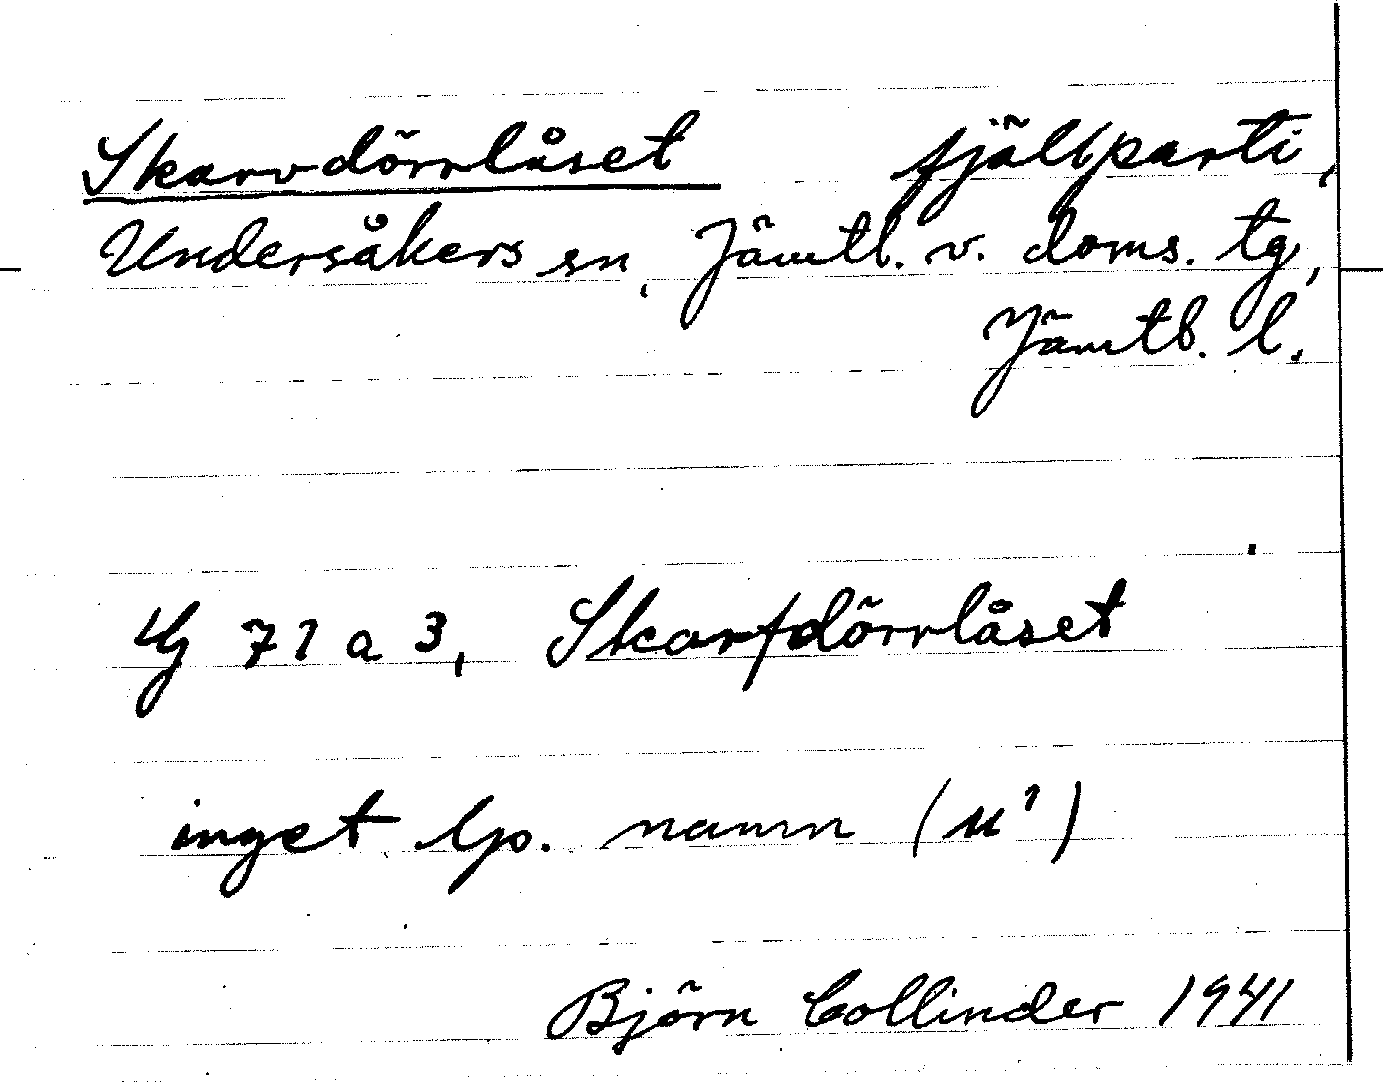 Skarvdörrlåset fjällparti,
Undersåkers sn, Jämtl. v. doms. tg,
Jämtl. l.
71 a 3, Skarfdörrlåset
inget lp. namn (u¹)
Björn Collinder 1941